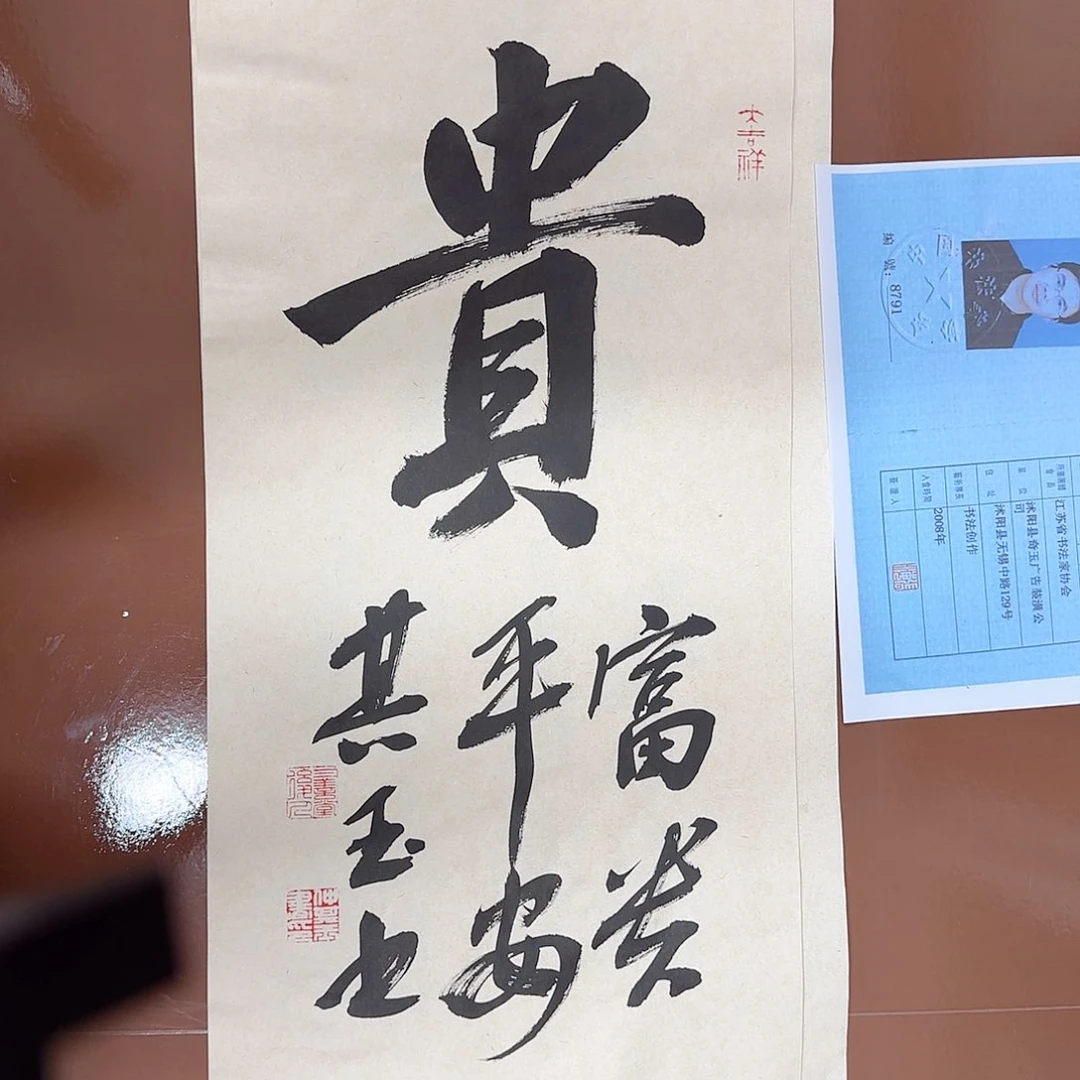 貴
富贵
平安
其玉书
大吉祥
编 號：8791
江苏省书法家协会
單 位 沭阳县奇玉广告装潢公司
住 址 沭阳县无锡中路129号
书法创作
入會時間 2008年